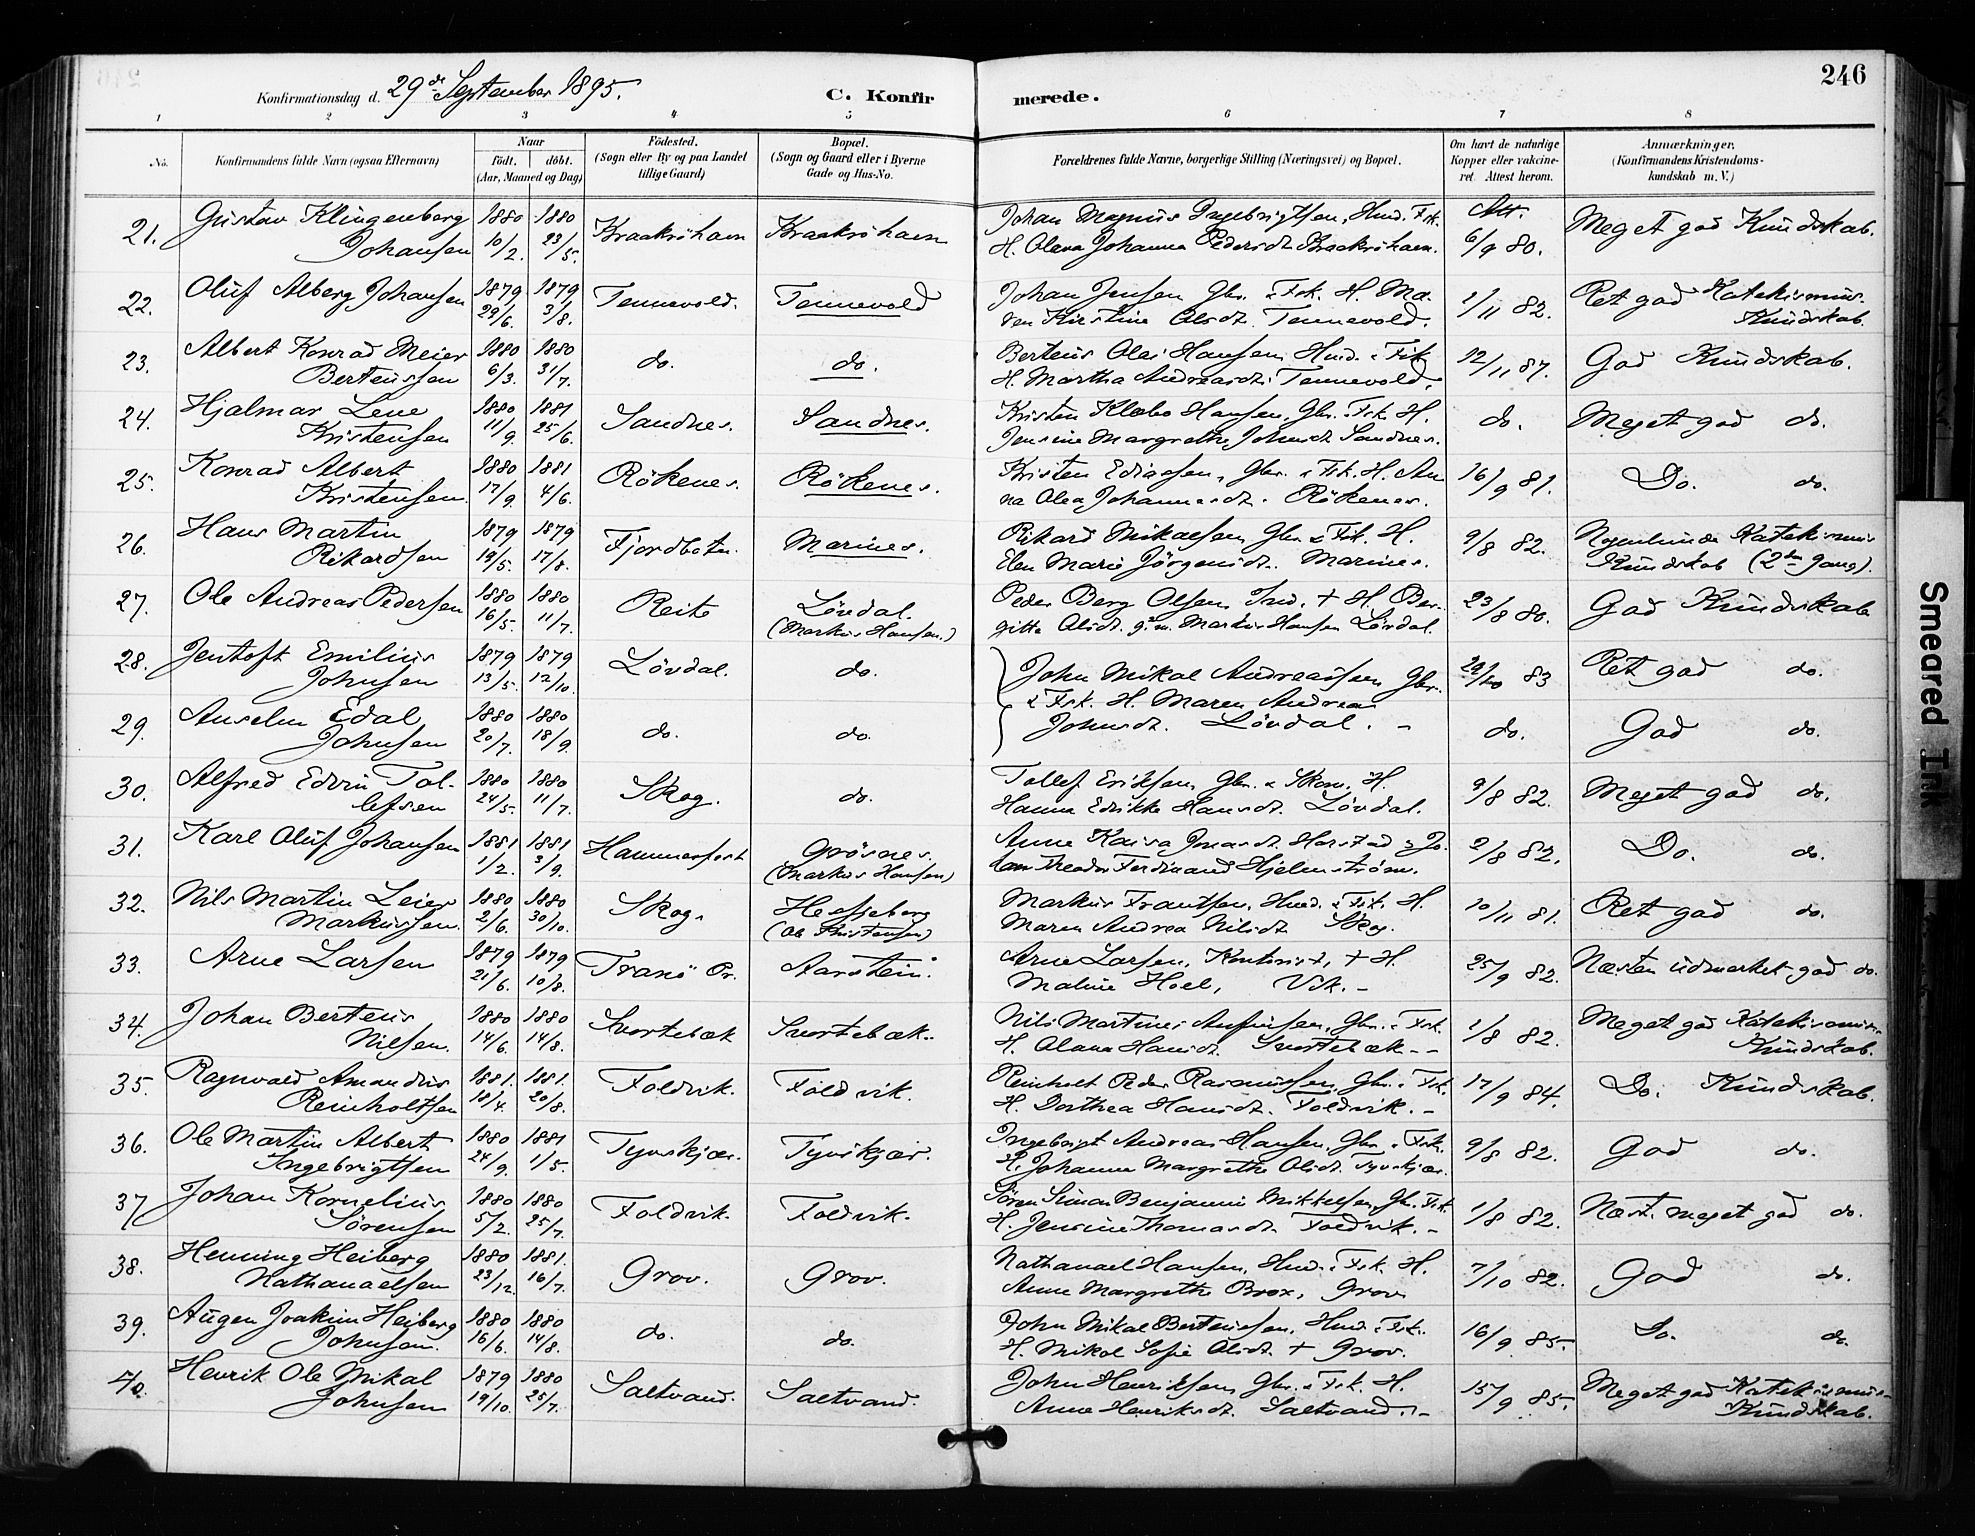 246
Konfirmationsdag d. 29de September 1895.
C. Konfirmerede.
1 2 3 4 5 6 7 8
No.
Konfirmandens fulde Navn (ogsaa Efternavn)
Naar
født. døbt.
(Aar, Maaned og Dag)
Födested.
(Sogn eller By og paa Landet
tillige Gaard)
Bopæl.
(Sogn og Gaard eller i Byerne
Gade og Hus-No.
Forældrenes fulde Navne, borgerlige Stilling (Næringsvei) og Bopæl.
Om havt de naturlige
Kopper eller vakcine-
ret. Attest herom.
Anmærkninger.
(Konfirmandens Kristendoms-
kundskab m. V.)
21. Gustav Klingenberg 1880 1880 Kraakröhavn Kraakröhavn Johan Magnus Ingebrigtsen, Hmd. Fsk. Att. Meget god Kundskab.
Johansen 10/2. 23/5. H. Olava Johanna Pedersdt. Kraakröhavn. 6/9 80.
22. Oluf Alberg Johansen 1879 1879 Tennevold. Tennevold Johan Jensen Gbr. & Fsk. H. Ma- 1/11 82. Ret god Katekismus-
29/6. 3/8. ren Kirstine Olsdt. Tennevold. Kundskab.
23. Albert Konrad Meier 1880 1880 do. do. Berteus Olai Hansen, Hmd. & Fsk. 12/11 87. God Kundskab.
Berteussen 6/3. 31/7. H. Martha Andreasdt. Tennevold.
24. Hjalmar Lene 1880 1881 Sandnes. Sandnes. Kristen Klæbo Hansen, Gbr. Fsk. H. do. Meget god do.
Kristensen 11/9. 25/6. Jensine Margrethe Johnsdt. Sandnes.
25. Konrad Albert 1880 1881 Rökenes. Rökenes. Kristen Ediassen, Gbr. & Fsk. H. An- 16/9 81. Do. do.
Kristensen. 17/9. 4/6. na Olea Johannesdt. Rökenes.
26. Hans Martin 1879 1879 Fjordbotn. Marines. Rikard Mikaelsen Gbr. & Fsk. H. 9/8 82. Nogenlunde Katekismus
Rikardsen 19/5. 17/8. Elen Marie Jörgensdt. Marines. Kundskab (2den Gang).
27. Ole Andreas Pedersen 1880 1880 Reite Lövdal. Peder Berg Olsen Ind. + H. Ber- 23/8 80. God Kundskab
16/5. 11/7. (Markus Hansen.) gitte Olsdt. g. m. Markus Hansen Lövdal.
28. Jentoft Emilius 1879 1879 Lövdal. do. John Mikal Andreassen Gbr. 29/10 83 Ret god do.
Johnsen 13/5. 12/10. & Fsk. H. Maren Andrea
29. Anselm Edal 1880 1880 do. do. Johnsdt. Lövdal. - do. God do.
Johnsen 20/7. 18/9.
30. Alfred Edvin Tol- 1880 1880 Skog. do. Tollef Eriksen, Gbr. & Skom. H. 9/8 82. Meget god do.
lefsen 24/5. 11/7. Hanna Edrikke Hansdt. Lövdal.
31. Karl Oluf Johansen 1881 1881 Hammerfest Grösnes. Anne Kaisa Jonasdt. Harstad & Jo- 2/8 82. Do. do.
1/2. 3/9. (Markus Hansen) han Theodor Ferdinand Hjelmström.
32. Nils Martin Leier 1880 1880 Skog. Hesjeberg Markus Frantsen, Hmd. & Fsk. H. 10/11 81. Ret god do.
Markussen. 2/6. 30/10. (Ole Kristensen) Maren Andrea Nilsdt. Skog.
33. Arne Larsen 1879 1879 Tranö Pr. Aarstein. Arne Larsen, Kontorist, + H. 25/9 82. Næsten udmærket god do.
21/6. 10/8. Maline Hoel, Vik. -
34. Johan Berteus 1880 1880 Svortebæk Svortebæk. Nils Martines Anfinsen, Gbr. & Fsk. 1/8 82. Meget god Katekismus-
Nilsen. 14/6. 14/8. H. Olava Hansdt. Svortebæk - - Kundskab.
35. Ragnvald Amandus 1881. 1881. Foldvik. Foldvik. Reinholt Peder Rasmussen, Gbr. & Fsk. 17/9 84. Do. Kundskab.
Reinholtsen 18/4. 20/8. H. Dorthea Hansdt. Foldvik. -
36. Ole Martin Albert 1880 1881 Tyvskjær. Tyvskjær. Ingebrigt Andreas Hansen, Gbr. & Fsk. 9/8 82. God do.
Ingebrigtsen 24/9. 1/5. H. Johanna Margrethe Olsdt. Tyvskjær.
37 Johan Kornelius 1880 1880 Foldvik. Foldvik. Sören Simon Benjamin Mikkelsen, Gbr. Fsk. 1/8 82. Næst. meget god do.
Sörensen 5/2. 25/7. H. Jensine Thomasdt. Foldvik. -
38. Henning Heiberg 1880 1881. Grov. Grov. Nathanael Hansen, Hmd. & Fsk. H. 7/10 82. God do.
Nathanaelsen 23/12. 16/7. Anne Margrethe Brox, Grov
39. Augen Joakim Heiberg 1880 1880 do. do. John Mikal Berteussen, Hmd. & Fsk. 16/9 85. Do. do.
Johnsen. 16/6. 14/8. H. Mikal Sofie Olsdt. + Grov.
40. Henrik Ole Mikal 1879 1880 Saltvand. Saltvand. John Henriksen, Gbr. & Fsk. H. 15/9 85. Meget god Katekismus-
Johnsen 19/10. 25/7. Anne Henriksdt. Saltvand. - Kundskab.
Smeared Ink